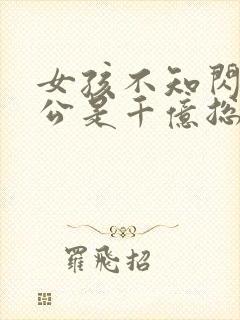 女孩不知閃
公是千億總
羅飛招